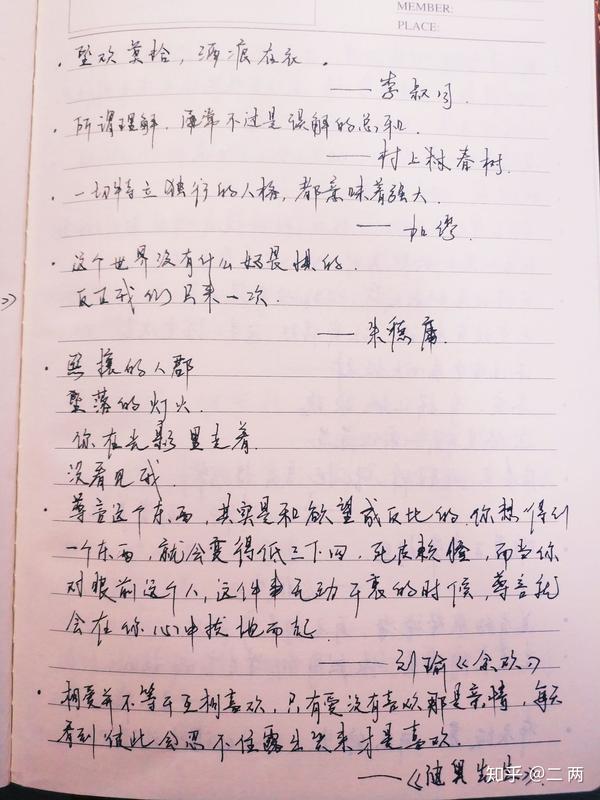 MEMBER:
PLACE:
· 坠欢莫拾,酒痕在衣.
——李叔同.
· 所谓理解,通常不过是误解的总和.
——村上春树.
· 一切特立独行的人格,都意味着强大.
——加缪.
· 这个世界没有什么好畏惧的.
反正我们只来一次.
——朱德庸.
· 熙攘的人群
坠落的灯火.
你在光影里走着.
没看见我.
· 尊严这个东西,其实是和欲望成反比的.你想得到
一个东西,就会变得低三下四,死皮赖脸,而当你
对眼前这个人,这件事无动于衷的时候,尊严就
会在你心中拔地而起.
——刘瑜《余欢》
· 相爱并不等于互相喜欢,只有爱没有喜欢那是亲情,每天
看到彼此会忍不住露出笑来才是喜欢.
——《随兴生活》.
知乎 @二两